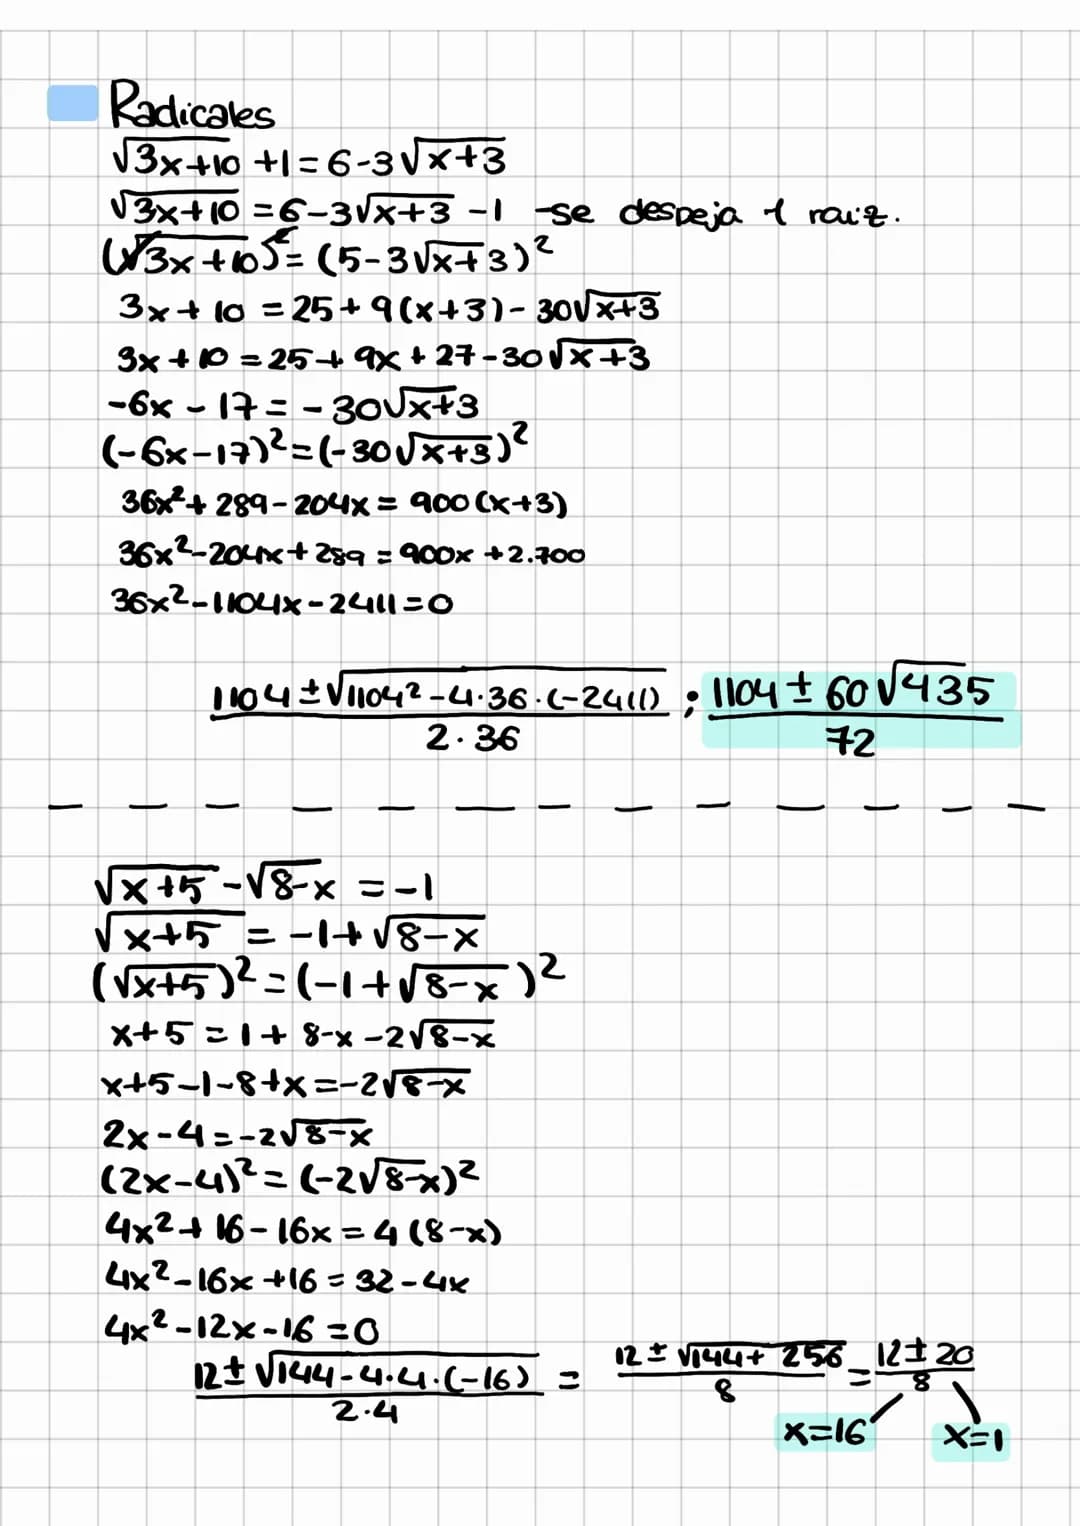 Radicales
√3x+10 +1 = 6-3√x+3
√3x+10 = 6-3√x+3 -1 -se despeja 1 raiz.
(√3x+10)² = (5-3√x+3)²
3x+10 = 25+9(x+3)-30√x+3
3x+10 = 25+9x+27-30√x+3
-6x-17 = -30√x+3
(-6x-17)² = (-30√x+3)²
36x²+289-204x = 900(x+3)
36x²-204x+289 = 900x+2.700
36x²-1104x-2411=0
1104±√1104²-4·36·(-2411) / 2·36 ; 1104±60√435 / 72
√x+5 -√8-x = -1
√x+5 = -1+√8-x
(√x+5)² = (-1+√8-x)²
x+5 = 1+8-x-2√8-x
x+5-1-8+x = -2√8-x
2x-4 = -2√8-x
(2x-4)² = (-2√8-x)²
4x²+16-16x = 4(8-x)
4x²-16x+16 = 32-4x
4x²-12x-16=0
12±√144-4·4·(-16) / 2·4 = 12±√144+256 / 8 = 12±20 / 8
x=16 x=1